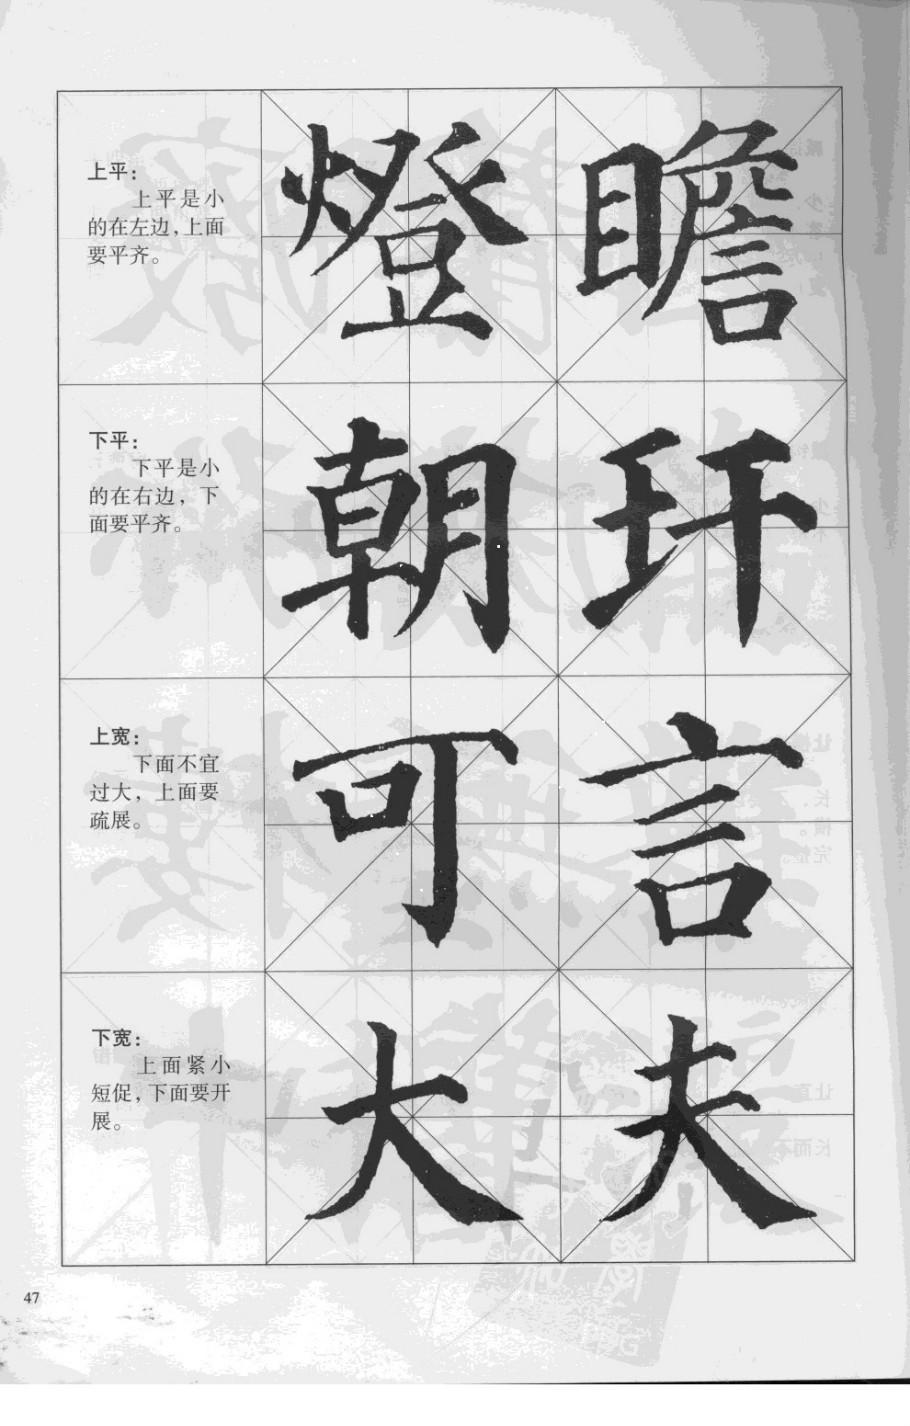 上平：
上平是小
的在左边，上面
要平齐。
燈 瞻
下平：
下平是小
的在右边，下
面要平齐。
朝 玕
上宽：
下面不宜
过大，上面要
疏展。
可 言
下宽：
上面紧小
短促，下面要开
展。
大 夫
47